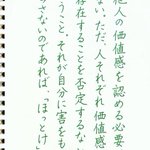 他人の価値感を認める必要
ない。ただ、人それぞれ価値感
存在することを否定するな、
うこと、それが自分に害をも
さないのであれば、「ほっとけ